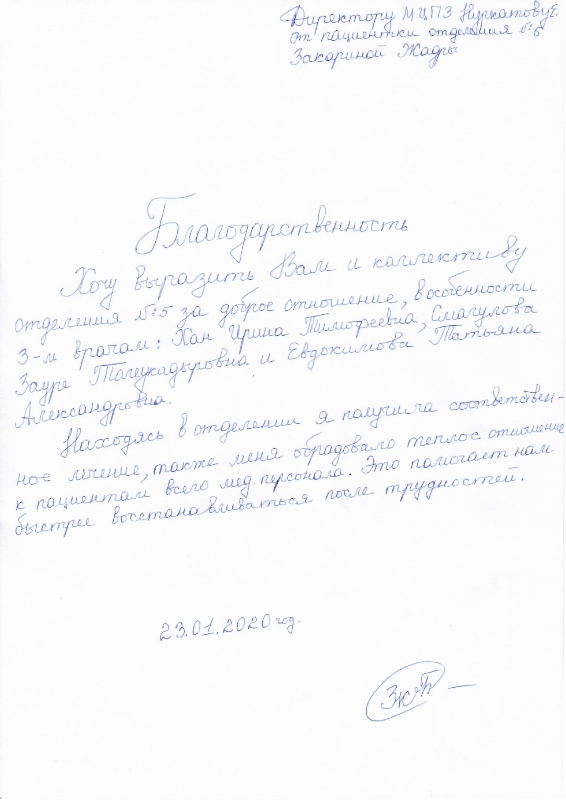 Директору МЦПЗ Нуркатову Е.
от пациентки отделения №5
Закариной Жадры
Благодарственность
Хочу выразить Вам и каллективу
отделения №5 за доброе отношение, в особенности
3-м врачам: Хан Ирина Тимофеевна, Смагулова
Зауре Тагеукадыровна и Евдокимова Татьяна
Александровна.
Находясь в отделении я получила соответствен-
ное лечение, также меня обрадовало теплое отношение
к пациентам всего мед. персонала. Это помогает нам
быстрее восстанавливаться после трудностей.
23.01.2020 год.